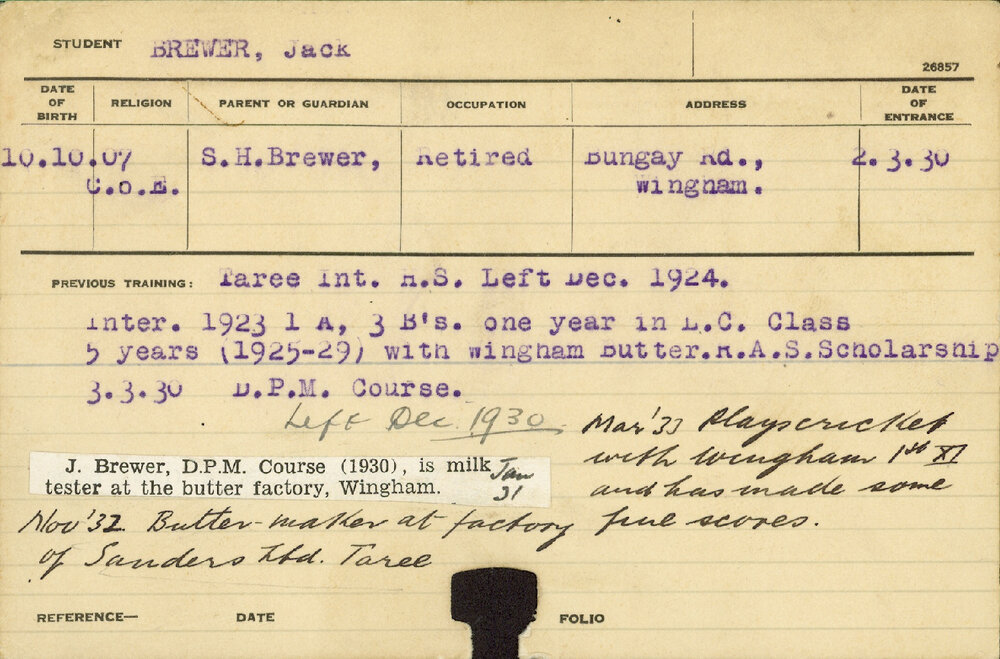 STUDENT BREWER, Jack
26857
DATE OF BIRTH RELIGION PARENT OR GUARDIAN OCCUPATION ADDRESS DATE OF ENTRANCE
10.10.07 S.H.Brewer, Retired Bungay Rd., 2.3.30
C.o.E. Wingham.
PREVIOUS TRAINING: Taree Int. H.S. Left Dec. 1924.
Inter. 1923 1 A, 3 B's. one year in L.C. Class
5 years (1925-29) with Wingham Butter.R.A.S.Scholarship
3.3.30 D.P.M. Course.
Left Dec 1930
Mar '33 Plays cricket
with Wingham 1st XI
and has made some
fine scores.
J. Brewer, D.P.M. Course (1930), is milk
tester at the butter factory, Wingham.
Jan
31
Nov '32 Butter-maker at factory
of Sanders Ltd. Taree
REFERENCE— DATE FOLIO